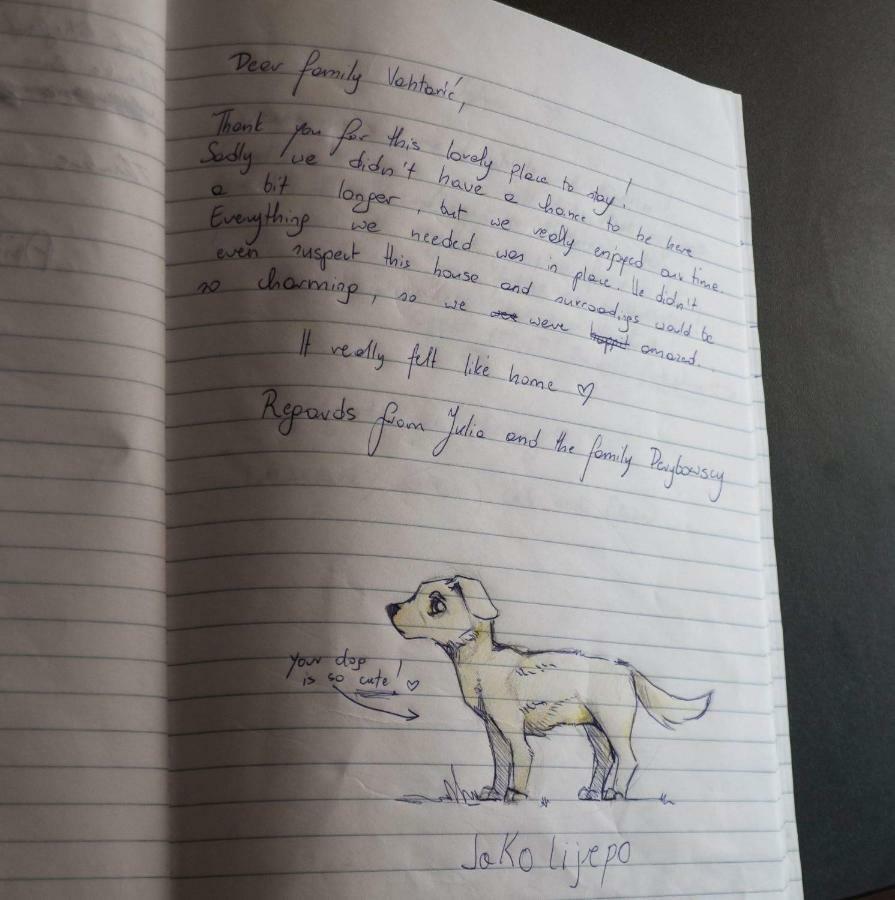 Dear family Vahtarić,
Thank you for this lovely place to stay!
Sadly we didn't have a chance to be here
a bit longer, but we really enjoyed our time.
Everything we needed was in place. We didn't
even suspect this house and surroodings would be
so charming, so we were amazed.
It really felt like home ♡
Regards from Julia and the family
your dog
is so cute! ♡
Jako lijepo